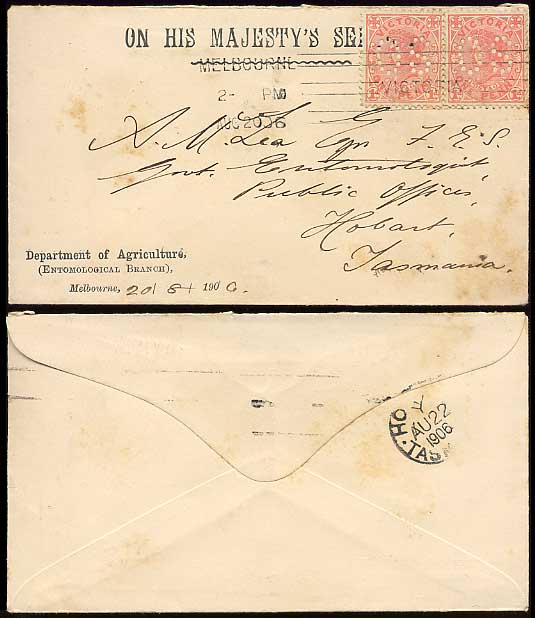 ON HIS MAJESTY'S SE
VICTORIA VICTORIA
MELBOURNE
2- PM
AUG 20 06
VICTORIA
A. M. Lea Esq. F. E. S.
Govt. Entomologist,
Public Offices,
Hobart,
Tasmania.
Department of Agriculture,
(ENTOMOLOGICAL BRANCH),
Melbourne, 20/ 8/ 1906.
HO Y
AU 22
1906
TAS